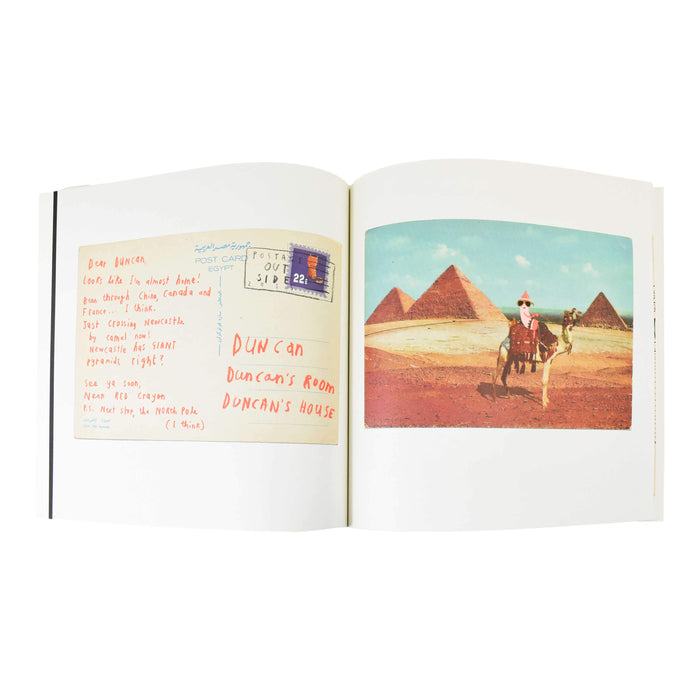 Dear DUNCAN,
Looks like I'm almost home!
Been through China, Canada and
France... I think.
Just crossing Newcastle
by camel now!
Newcastle has GIANT
pyramids right?
See ya soon,
Neon RED Crayon
P.S. Next stop, the NORTH Pole
(I think)
جمهورية مصر العربية
POST CARD
EGYPT
OUT
SIDE
22¢
DUNCan
DUNCan's ROOM
DUNCAN'S HOUSE